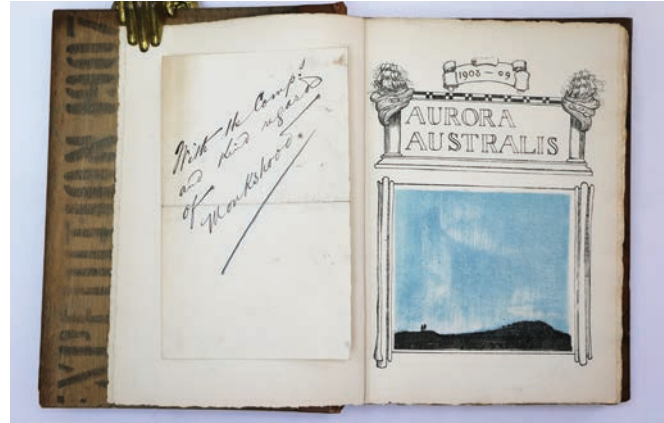 EXPEDITION 1907
With the Comp:s
and kind regards
of
Monkshood.
1908-09
AURORA
AUSTRALIS